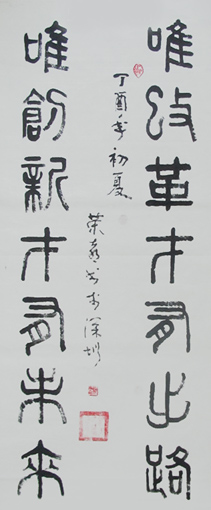 唯改革才有出路
丁酉年初夏
唯創新才有未來
榮喜书於深圳